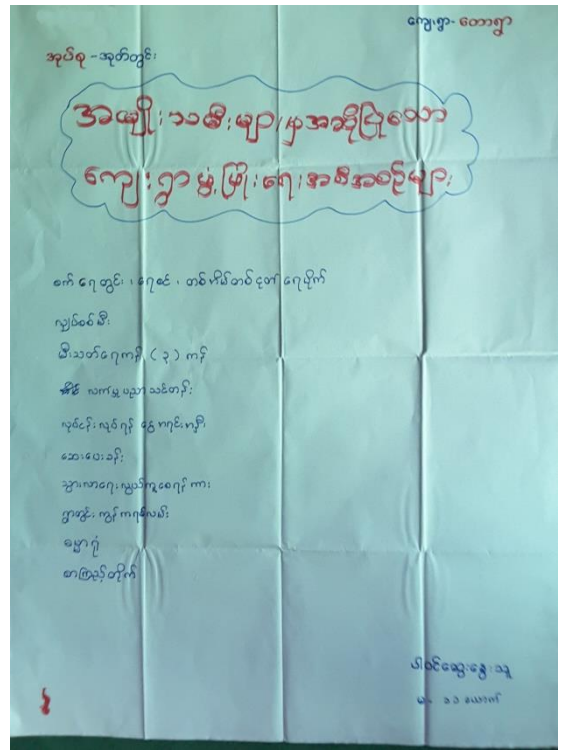 ကျေးရွာ- တောရွာ
အုပ်စု - အုတ်တွင်း
အမျိုးသမီးများမှအဆိုပြုသော
ကျေးရွာဖွံ့ဖြိုးရေးအစီအစဉ်များ
စက်ရေတွင်း ၊ ရေစင် ၊ တစ်အိမ်တစ်ငုတ် ရေပိုက်
လျှပ်စစ်မီး
မီးသတ်ရေကန် (၃) ကန်
လက်မှုပညာသင်တန်း
လုပ်ငန်းလုပ်ရန် ငွေအရင်းအနှီး
ဆေးပေးခန်း
သွားလာရေးလွယ်ကူစေရန် ကား
ရွာတွင်း ကွန်ကရစ်လမ်း
ဓမ္မာရုံ
စာကြည့်တိုက်
ပါဝင်ဆွေးနွေးသူ
မ - ၁၁ ယောက်